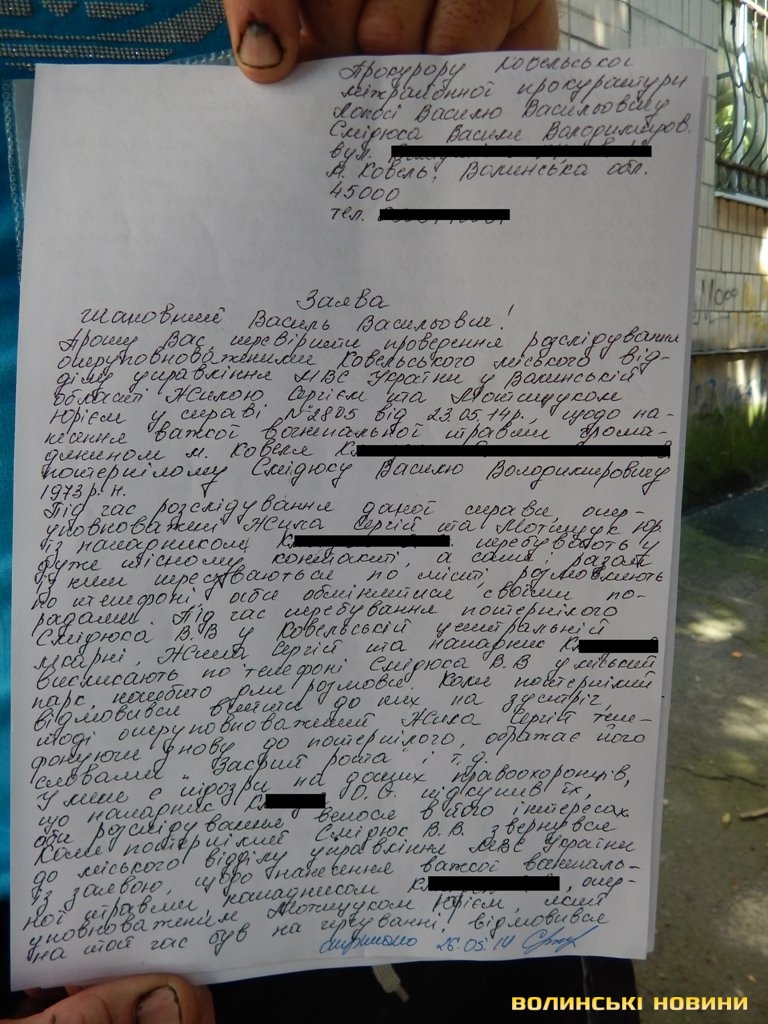 Прокурору Ковельської
міжрайонної прокуратури
Лопосі Василю Васильовичу
Смідюса Василя Володимиров.
вул.
м. Ковель, Волинська обл.
45000
тел.
Заява
Шановний Василь Васильович!
Прошу Вас, перевірити проведення розслідування
оперуповноваженими Ковельського міського від-
ділу управління МВС України у Волинській
області Жилою Сергієм та Мотищуком
Юрієм у справі №2805 від 23.05.14р., щодо на-
несення важкої вогнепальної травми грома-
дянином м. Ковеля К
потерпілому Смідюсу Василю Володимировичу
1973 р.н.
Під час розслідування даної справи, опер-
уповноважені Жила Сергій та Мотищук Юр
із нападником К перебувають у
дуже тісному контакті, а саме: разом
із ним пересуваються по місті, розмовляють
по телефоні обмінятися своїми по-
радами. Під час перебування потерпілого
Смідюса В.В у Ковельській центральній
лікарні, Жила Сергій та нападник К
викликають по телефоні Смідюса В.В у міський
парк, начебто для розмови. Коли потерпілий
відмовився вийти до них на зустріч,
тоді оперуповноважений Жила Сергій теле-
фонуючи знову до потерпілого, ображає його
словами "Закрий рота" і т.д.
У мене є підозри на даних правоохоронців,
що нападник К О.С. підкупив їх,
аби розслідування велося в його інтересах.
Коли потерпілий Смідюс В.В. звернувся
до міського відділу управління МВС України
із заявою, щодо нанесення важкої вогнепаль-
ної травми нападником К , опер-
уповноваженим Мотищуком Юрієм, який
на той час був на чергуванні, відмовився
отримано 26.05.14
ВОЛИНСЬКІ НОВИНИ